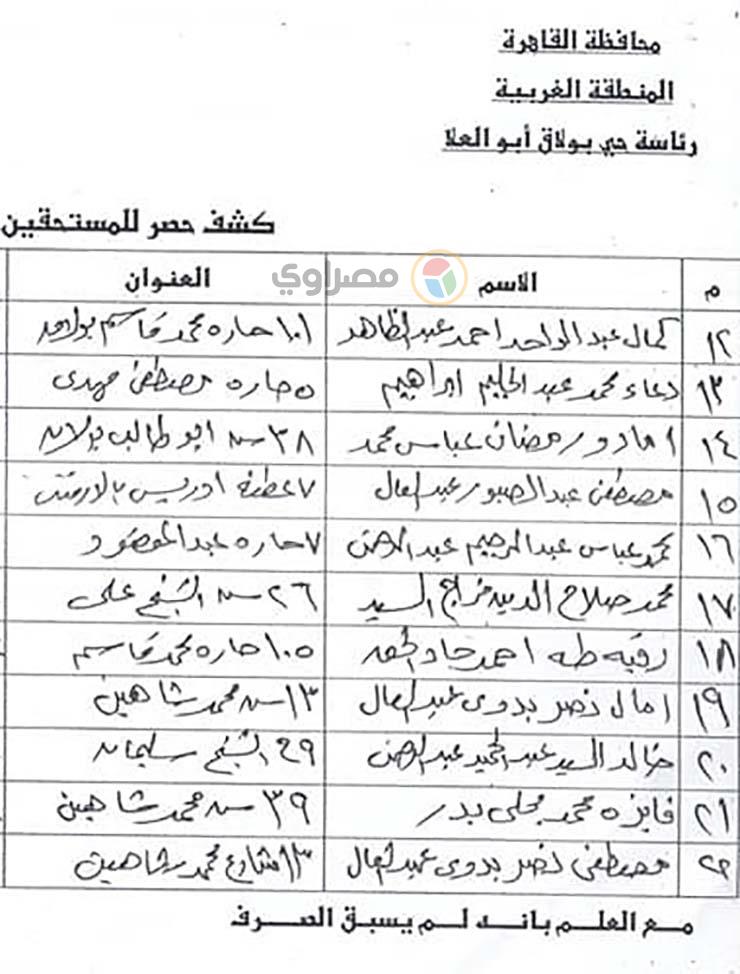 محافظة القاهرة
المنطقة الغربية
رئاسة حي بولاق أبو العلا
كشف حصر للمستحقين
م الاسم العنوان
مصراوي
١٢ كمال عبد الواحد احمد عبد الظاهر ١٠١ حاره محمد قاسم
١٣ دعاء محمد عبد الحليم ابراهيم ٥ حاره مصطفى مهدى
١٤ رمضان عباس محمد ٣٨ ش ابو طالب بولاق
١٥ مصطفى عبد الصبور عبد العال ٧ عطفة ادريس
١٦ محمد عباس عبد الرحيم عبد الرحمن ٧ حاره عبد المقصود
١٧ محمد صلاح الدين فراج السيد ٢٦ ش الشيخ على
١٨ رقيه طه احمد جاد الحق ١٠٥ حاره محمد قاسم
١٩ امال نصر بدوى عبد العال ١٣ ش محمد شاهين
٢٠ خالد السيد عبد الحميد عبد الرحمن ٤٩ الشيخ سليمان
٢١ فايزه محمد بدر ٣٩ ش محمد شاهين
٢٢ مصطفى نصر بدوى عبد العال ١٣ شارع محمد شاهين
مع العلم بانه لم يسبق الصرف